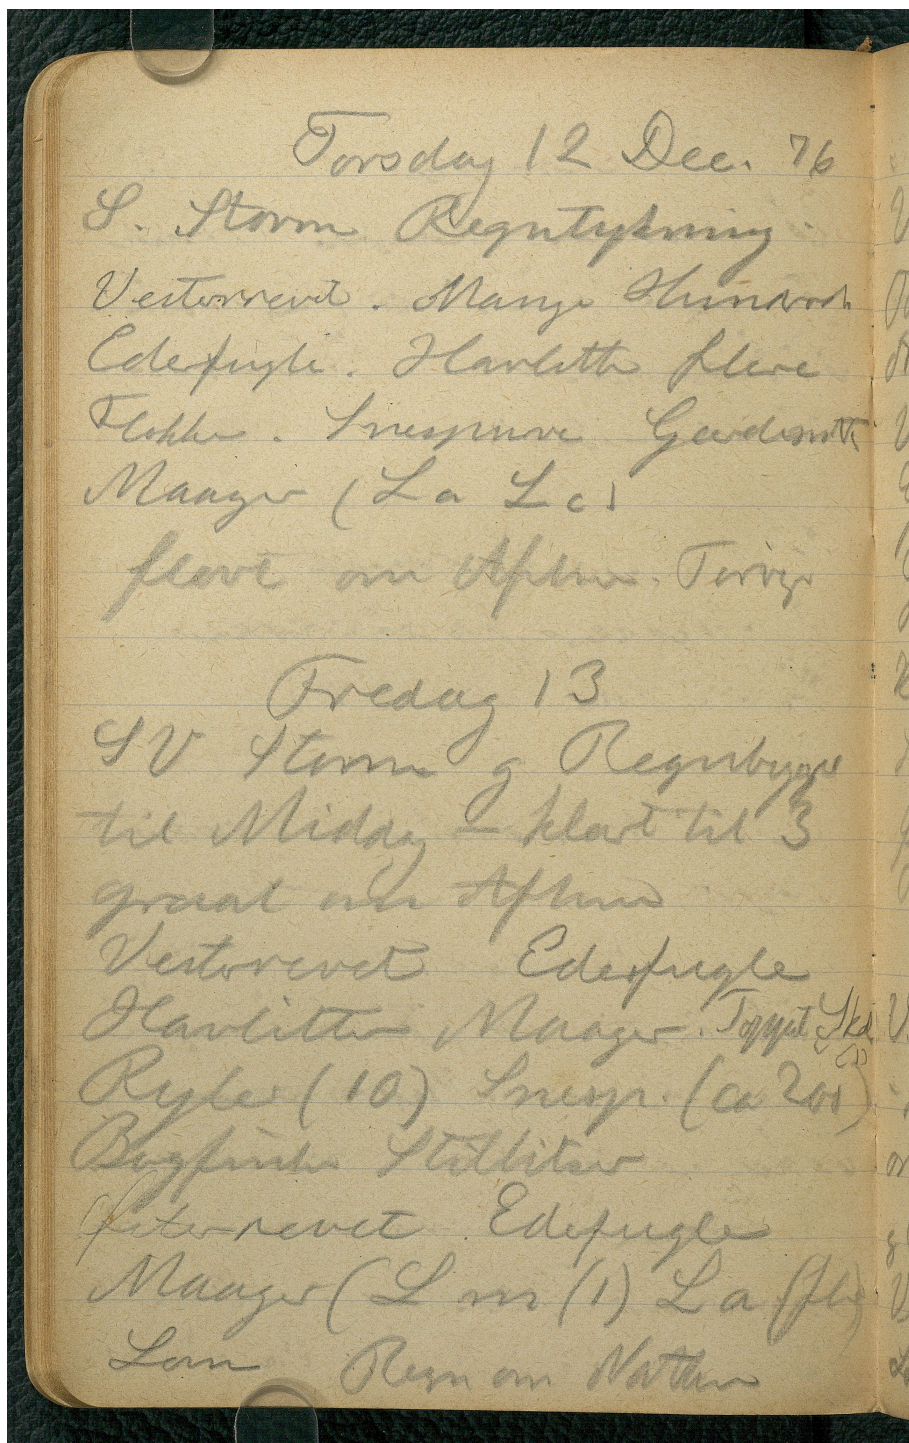 Torsdag 12 Dec. 76
S. Storm Regntykning.
Vesterrevet. Mange Hundrede
Edefugle. Havlitter flere
Flokke. Snespurve Gærdesmutte
Maager (La Lc)
flovt om Aften. Torvge
Fredag 13
SV Storm og Regnbyger
til Middag - klart til 3
graat om Aftnen
Vesterrevet Edefugle
Havlitter Maager. Toppet Sk
Ryler (10) Snesp. (ca 200)
Bogfinke Stillitser
revet Edefugle
Maager (L m (1) La (fl)
Lom Regn om Natten